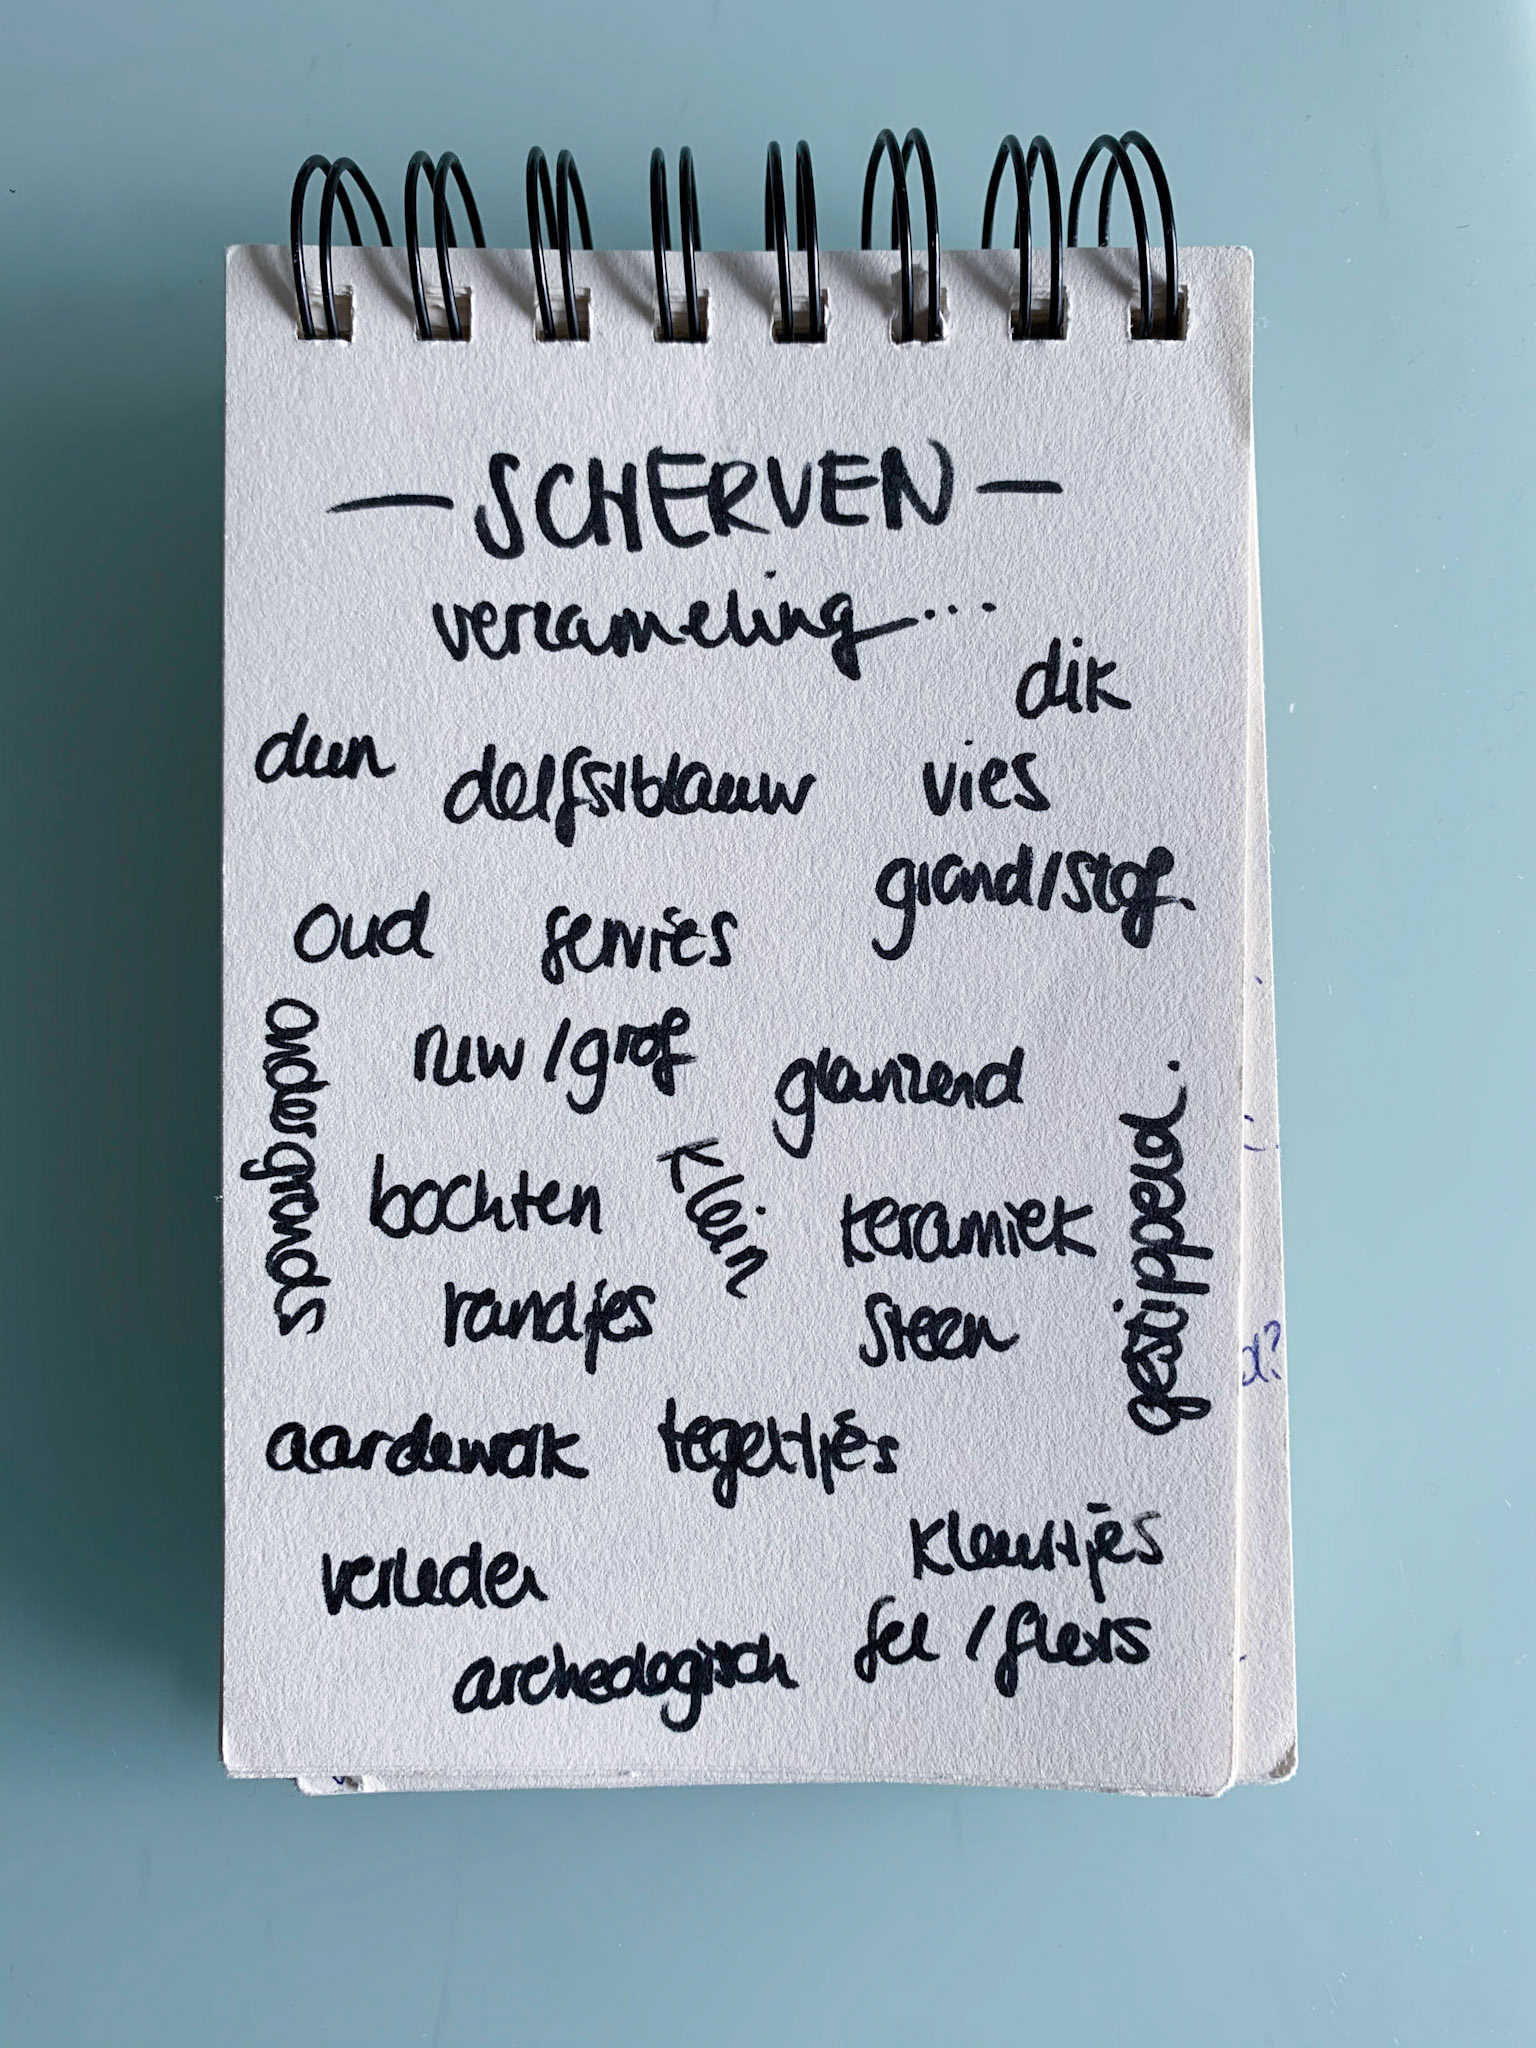 — SCHERVEN —
verzameling...
dik
dun
delfstblauw
vies
grond/stof.
oud
servies
ruw/grof
glanzend
ondergronds
bochten
klein
keramiek
gestippeld.
randjes
steen
aardewerk
tegeltjes
kleurtjes
verleden
fel / flets
archeologisch
d?